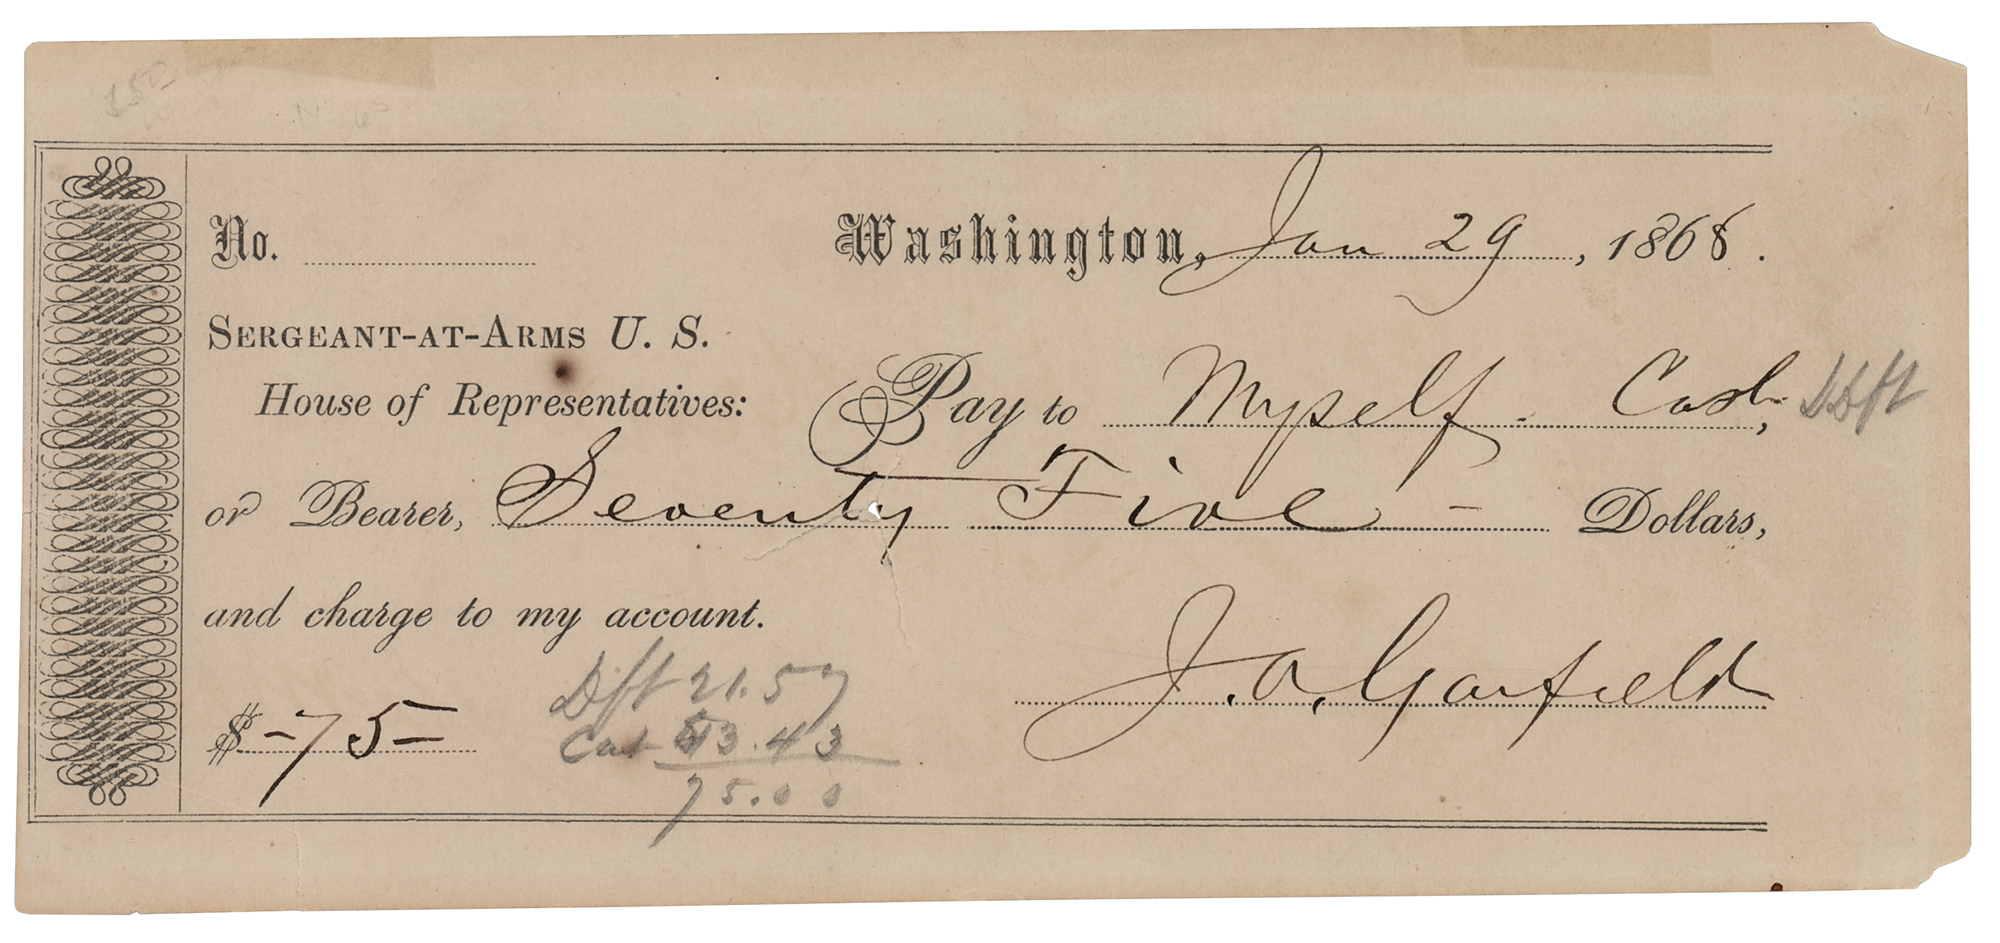 No. Washington, Jan 29, 1868.
SERGEANT-AT-ARMS U. S.
House of Representatives: Pay to Myself - Cash, & Dft
or Bearer, Seventy Five - Dollars,
and charge to my account.
Dft 21.57
$ -75- Cash 53.43
75.00
J. A. Garfield